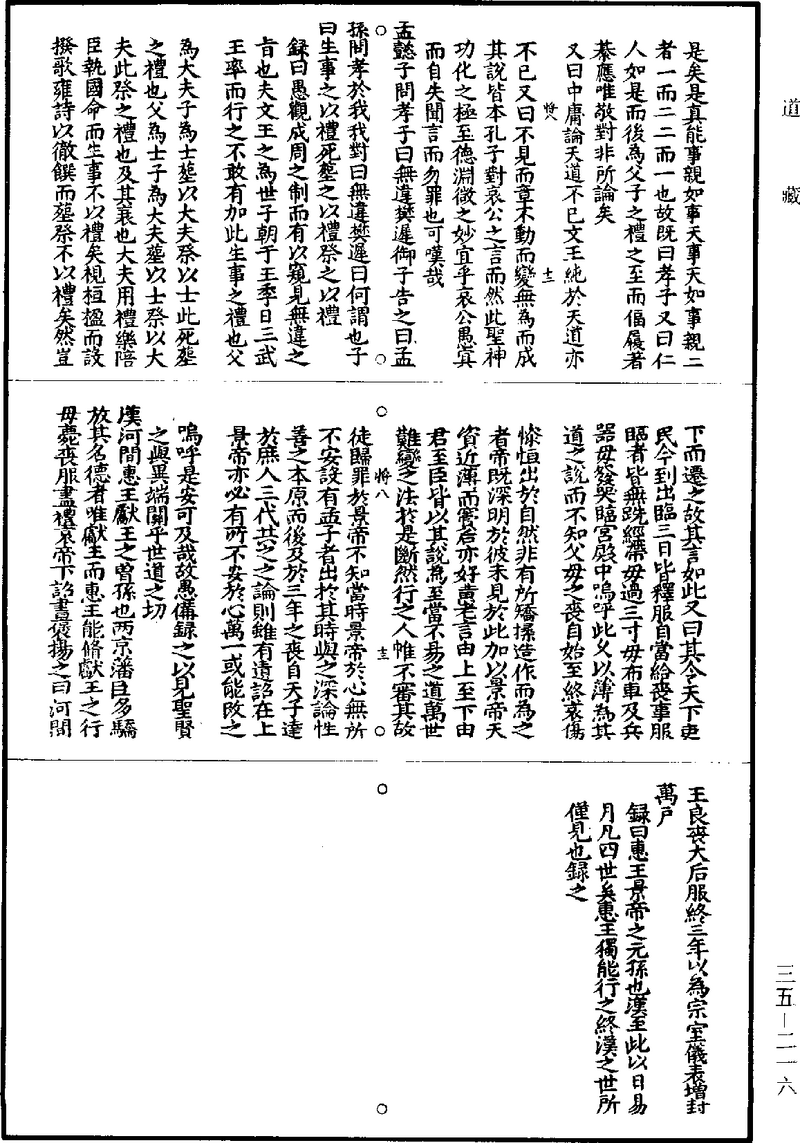 道藏
是矣是真能事親如事天事天如事親二
者一而二二而一也故既曰孝子又曰仁
人如是而後為父子之禮之至而偪屨著
綦應唯敬對非所論矣
又曰中庸論天道不已文王純於天道亦
將八
十二
不已又曰不見而章不動而變無為而成
其說皆本孔子對哀公之言而然此聖神
功化之極至德淵微之妙宜乎哀公愚冥
而自失聞言而勿罪也可嘆哉
孟懿子問孝子曰無違樊遲御子告之曰孟
孫問孝於我我對曰無違樊遲曰何謂也子
曰生事之以禮死塟之以禮祭之以禮
録曰愚觀成周之制而有以窺見無違之
旨也夫文王之為世子朝于王季日三武
王率而行之不敢有加此生事之禮也父
為大夫子為士塟以大夫祭以士此死塟
之禮也父為士子為大夫塟以士祭以大
夫此祭之禮也及其衰也大夫用禮樂陪
臣執國命而生事不以禮矣視桓楹而設
撥歌雍詩以徹饌而塟祭不以禮矣然豈
下而遷之故其言如此又曰其令天下吏
民令到出臨三日皆釋服自當給喪事服
臨者皆無跣絰帶毋過三寸毋布車及兵
器毋發哭臨宮殿中嗚呼此又以薄為其
道之說而不知父母之喪自始至終哀傷
慘怛出於自然非有所矯揉造作而為之
者帝既深明於彼未見於此加以景帝天
資近薄而竇后亦好黃老言由上至下由
君至臣皆以其說為至當不易之道萬世
難變之法於是斷然行之人惟不審其故
將八
十三
徒歸罪於景帝不知當時景帝於心無所
不安設有孟子者出於其時與之深論性
善之本原而後及於三年之喪自天子達
於庶人三代共之之論則雖有遺詔在上
景帝亦必有所不安於心萬一或能改之
嗚呼是安可及哉故愚備録之以見聖賢
之與異端關乎世道之切
漢河間惠王獻王之曾孫也兩京藩臣多驕
放其名德者唯獻王而惠王能脩獻王之行
母薨喪服盡禮哀帝下詔書褒揚之曰河間
王良喪大后服終三年以為宗室儀表增封
萬戶
録曰惠王景帝之元孫也漢至此以日易
月凡四世矣惠王獨能行之終漢之世所
僅見也録之
三五—二一六